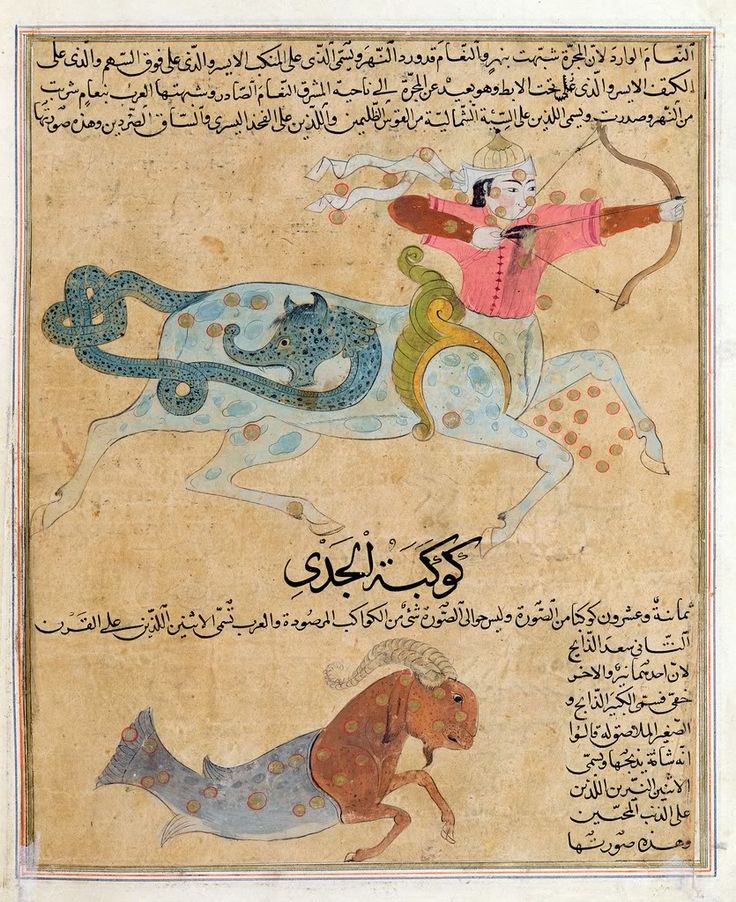 النعام الوارد لان المجرة شبهت بنهر والنعام قد ورد النهر ويسمى الذى على المنكب الايسر والذى على فوق السهم والذى على
الكتف الايسر والذى تحت الابط وهو بعيد عن المجرة الى ناحية المشرق النعام الصادر وشبهتها العرب بنعام شربت
من النهر وصدرت ويسمى اللذين على السية الشمالية من القوس الظليمين واللذين على الفخذ اليسرى والساق الصردين وهذه صورتها
كوكبة الجدى
ثمانية وعشرون كوكبا من الصورة وليس حوالى الصورة شئ من الكواكب المرصودة والعرب تسمى الاثنين اللذين على القرن
الثانى سعد الذابح
لان احدهما نير والاخر
خفى فسمى الكبير الذابح و
الصغير الملاصق له قالوا
انه شاته يذبحها ويسمى
الاثنين النيرين اللذين
على الذنب المحبين
وهذه صورتها